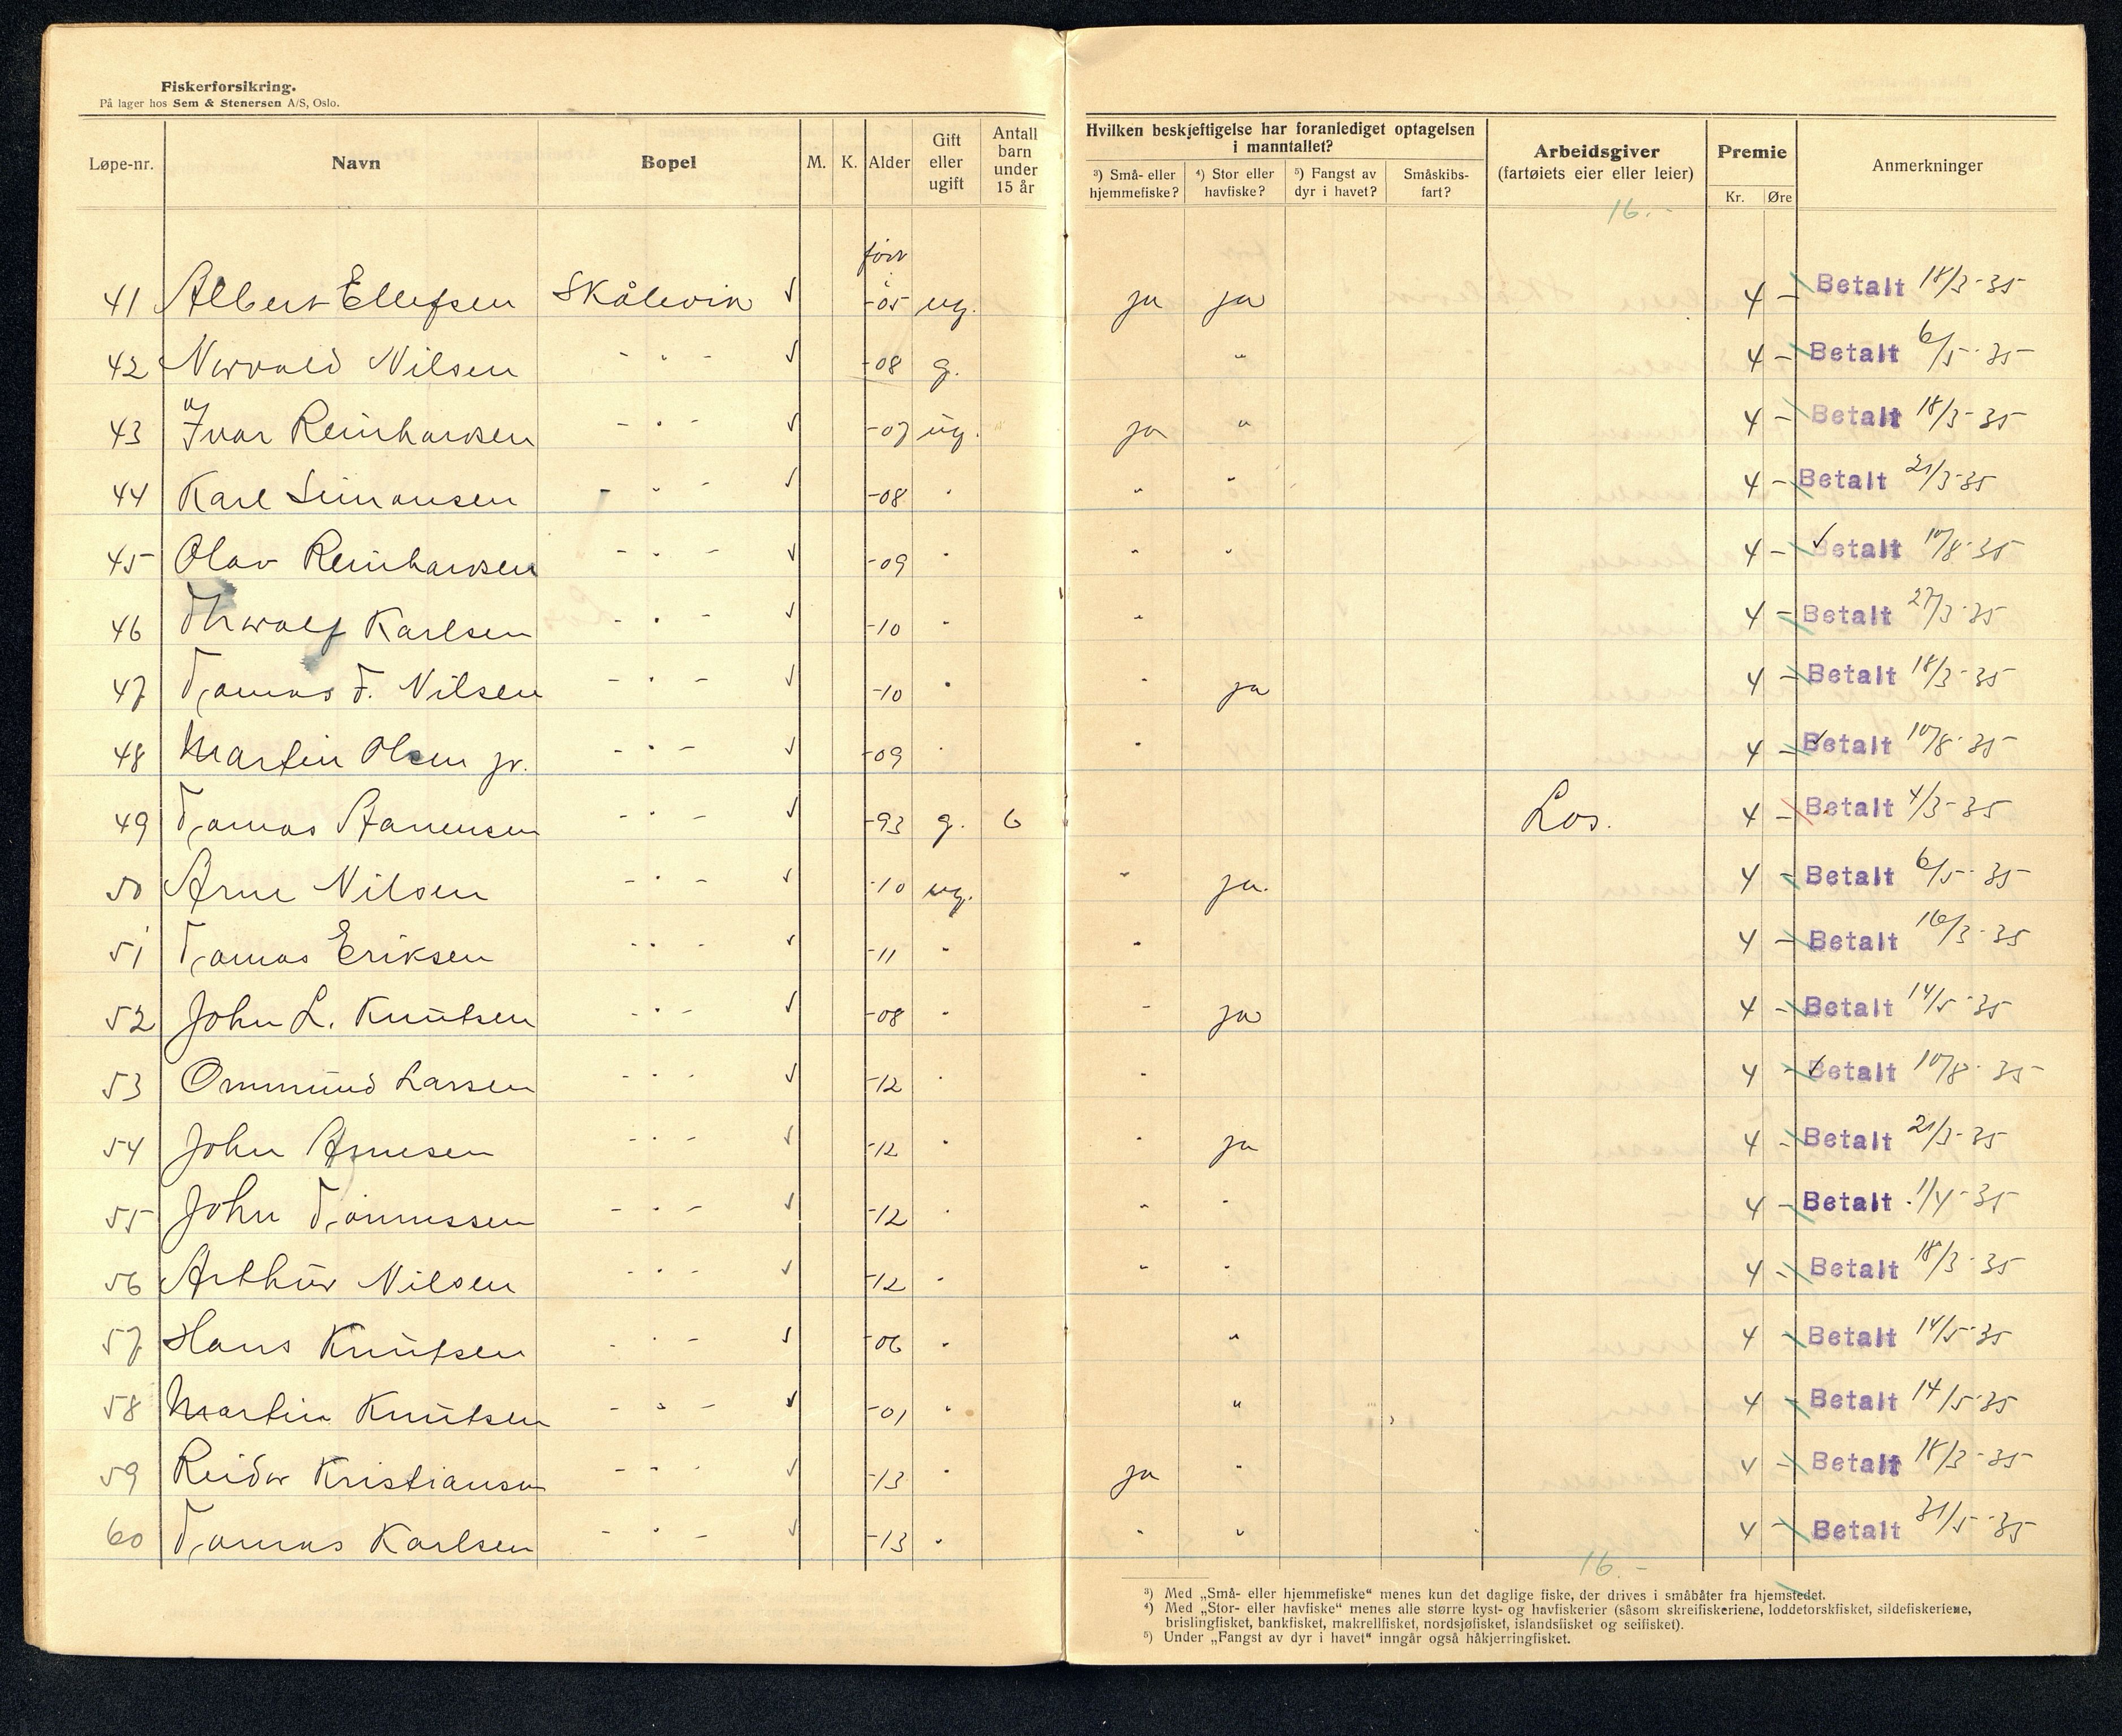 Fiskerforsikring.
På lager hos Sem & Stenersen A/S, Oslo.
Løpe-nr. Navn Bopel M. K. Alder Gift eller ugift Antall barn under 15 år Hvilken beskjeftigelse har foranlediget optagelsen i manntallet? ³) Små- eller hjemmefiske? ⁴) Stor eller havfiske? ⁵) Fangst av dyr i havet? Småskibs-fart? Arbeidsgiver (fartøiets eier eller leier) Premie Kr. Øre Anmerkninger
16.-
41 Albert Ellefsen Skålevik √ -05 ug. ja ja 4 - Betalt 18/3-35
42 Norvald Nilsen - " - √ -08 g. " 4 - Betalt 6/5-35
43 Ivar Reinhardsen - " - √ -07 ug. ja " 4 - Betalt 18/3-35
44 Karl Simonsen - " - √ -08 " " " 4 - Betalt 21/3-35
45 Olav Reinhardsen - " - √ -09 " " " 4 - Betalt 10/8-35
46 Karlsen - " - √ -10 " " 4 - Betalt 27/3-35
47 Tomas T. Nilsen - " - √ -10 " " ja 4 - Betalt 18/3-35
48 Martin Olsen jr. - " - √ -09 " " 4 - Betalt 10/8-35
49 Tomas - " - √ -93 g. 6 Los. 4 - Betalt 4/3-35
50 Arne Nilsen - " - √ -10 ug. " ja. 4 - Betalt 6/5-35
51 Tomas Eriksen - " - √ -11 " " 4 - Betalt 16/3-35
52 John L. Knutsen - " - √ -08 " " ja 4 - Betalt 14/5-35
53 Ommund Larsen - " - √ -12 " " 4 - Betalt 10/8-35
54 John - " - √ -12 " " ja 4 - Betalt 21/3-35
55 John Tønnessen - " - √ -12 " " " 4 - Betalt 1/4-35
56 Arthur Nilsen - " - √ -12 " " " 4 - Betalt 18/3-35
57 Hans Knutsen - " - √ -06 " " 4 - Betalt 14/5-35
58 Martin Knutsen - " - √ -01 " " 4 - Betalt 14/5-35
59 Reidar Kristiansen - " - √ -13 " ja " 4 - Betalt 18/3-35
60 Tomas Karlsen - " - √ -13 " " " 4 - Betalt 31/5-35
16.-
³) Med „Små- eller hjemmefiske" menes kun det daglige fiske, der drives i småbåter fra hjemstedet.
⁴) Med „Stor- eller havfiske" menes alle større kyst- og havfiskerier (såsom skreifiskeriene, loddetorskfisket, sildefiskeriene,
brislingfisket, bankfisket, makrellfisket, nordsjøfisket, islandsfisket og seifisket).
⁵) Under „Fangst av dyr i havet" inngår også håkjerringfisket.